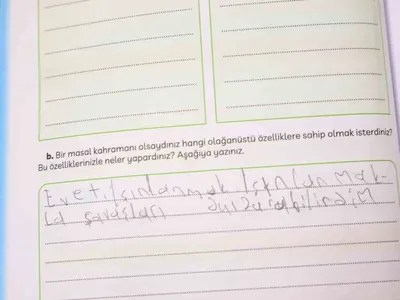 b. Bir masal kahramanı olsaydınız hangi olağanüstü özelliklere sahip olmak isterdiniz?
Bu özelliklerinizle neler yapardınız? Aşağıya yazınız.
Evet ışınlanmak Işınlanmak-
la savaşları durdurabilirdim